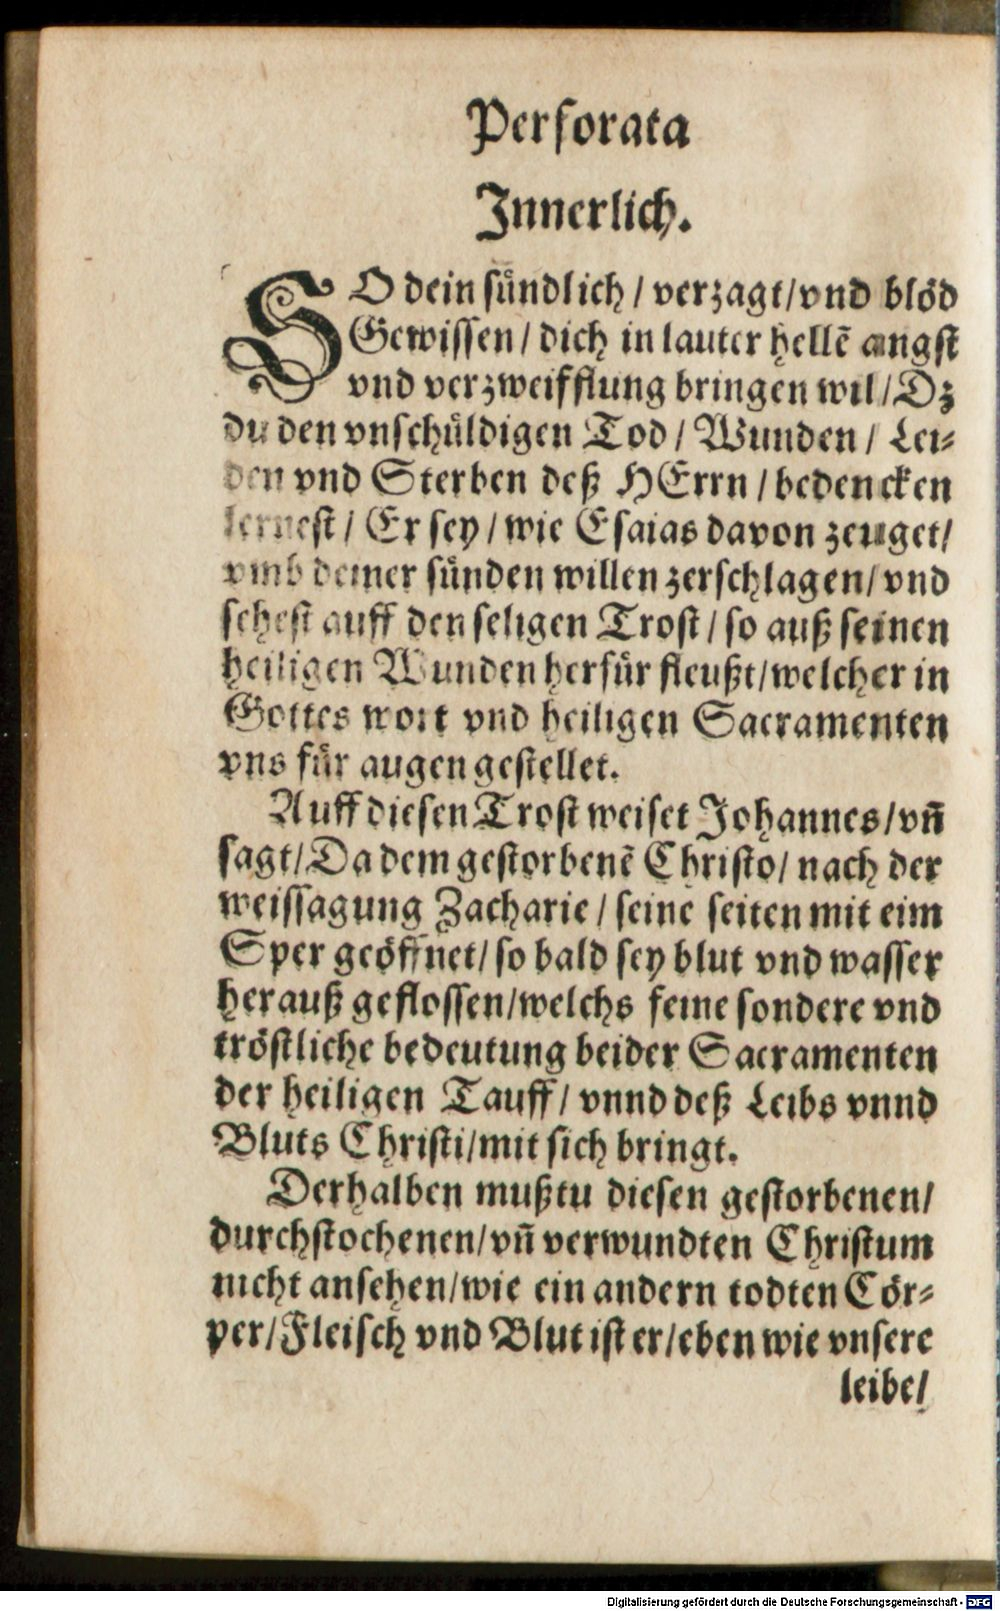 Perforata
Innerlich.
SO dein sündlich / verzagt/vnd blöd
Gewissen / dich in lauter hellē angst
vnd verzweifflung bringen wil / Dz
du den vnschüldigen Tod / Wunden / Lei-
den vnd Sterben deß HErrn / bedencken
lernest / Er sey / wie Esaias davon zeuget/
vmb deiner sünden willen zerschlagen/ vnd
sehest auff den seligen Trost / so auß seinen
heiligen Wunden herfür fleußt/welcher in
Gottes wort vnd heiligen Sacramenten
vns für augen gestellet.
Auff diesen Trost weiset Johannes/vn̄
sagt/Da dem gestorbenē Christo/ nach der
weissagung Zacharie / seine seiten mit eim
Sper geöffnet/ so bald sey blut vnd wasser
herauß geflossen/welchs feine sondere vnd
tröstliche bedeutung beider Sacramenten
der heiligen Tauff / vnnd deß Leibs vnnd
Bluts Christi/mit sich bringt.
Derhalben mußtu diesen gestorbenen/
durchstochenen/vn̄ verwundten Christum
nicht ansehen/wie ein andern todten Cör-
per/Fleisch vnd Blut ist er/eben wie vnsere
leibe/
Digitalisierung gefördert durch die Deutsche Forschungsgemeinschaft - DFG